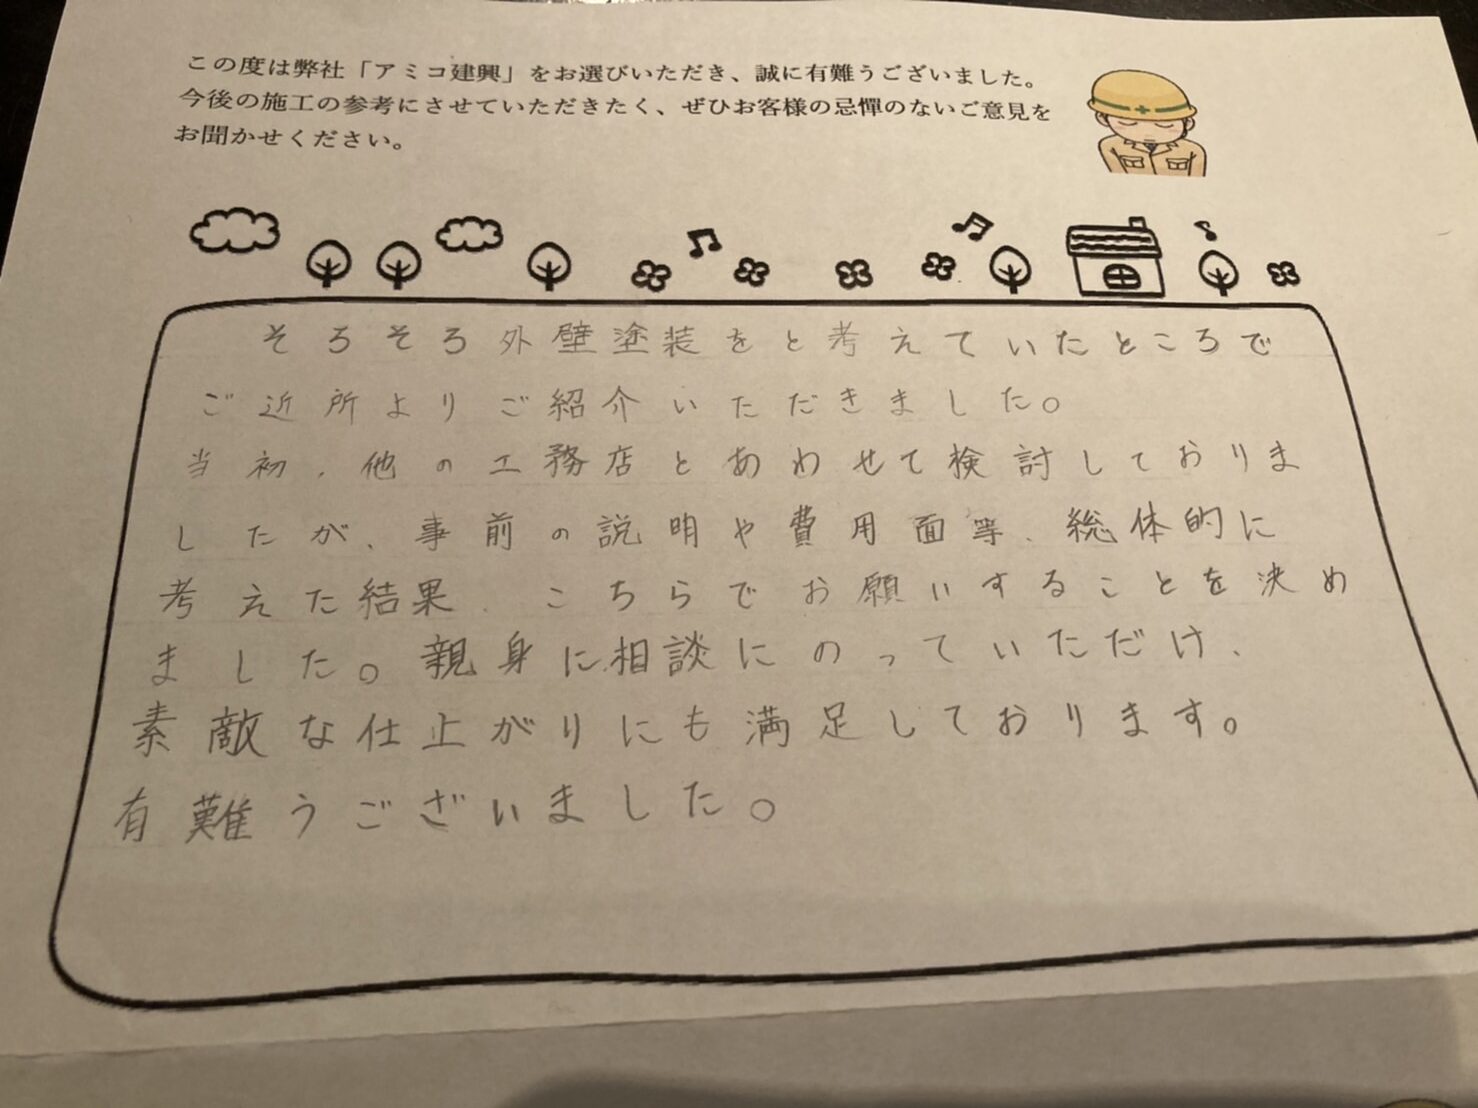 この度は弊社「アミコ建興」をお選びいただき、誠に有難うございました。
今後の施工の参考にさせていただきたく、ぜひお客様の忌憚のないご意見を
お聞かせください。
そろそろ外壁塗装をと考えていたところで
ご近所よりご紹介いただきました。
当初、他の工務店とあわせて検討しておりま
したが、事前の説明や費用面等、総体的に
考えた結果、こちらでお願いすることを決め
ました。親身に相談にのっていただけ、
素敵な仕上がりにも満足しております。
有難うございました。